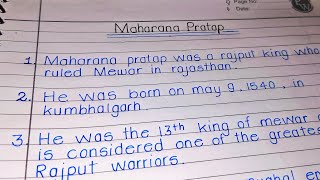 Page No
Date
Maharana Pratap
1. Maharana pratap was a rajput king who
ruled Mewar in rajasthan.
2. He was born on may 9, 1540, in
kumbhalgarh.
3. He was the 13th king of mewar
is considered one of the greates
Rajput warriors.